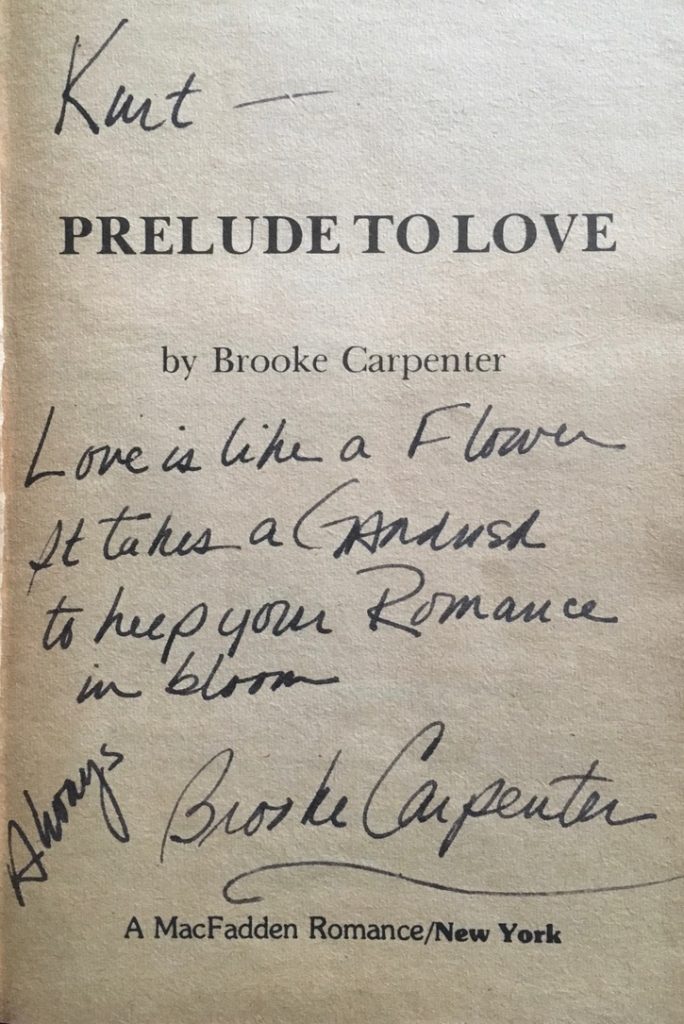 Kurt —
PRELUDE TO LOVE
by Brooke Carpenter
Love is like a Flower
It takes a
to keep your Romance
in bloom
Always
Brooke Carpenter
A MacFadden Romance/New York